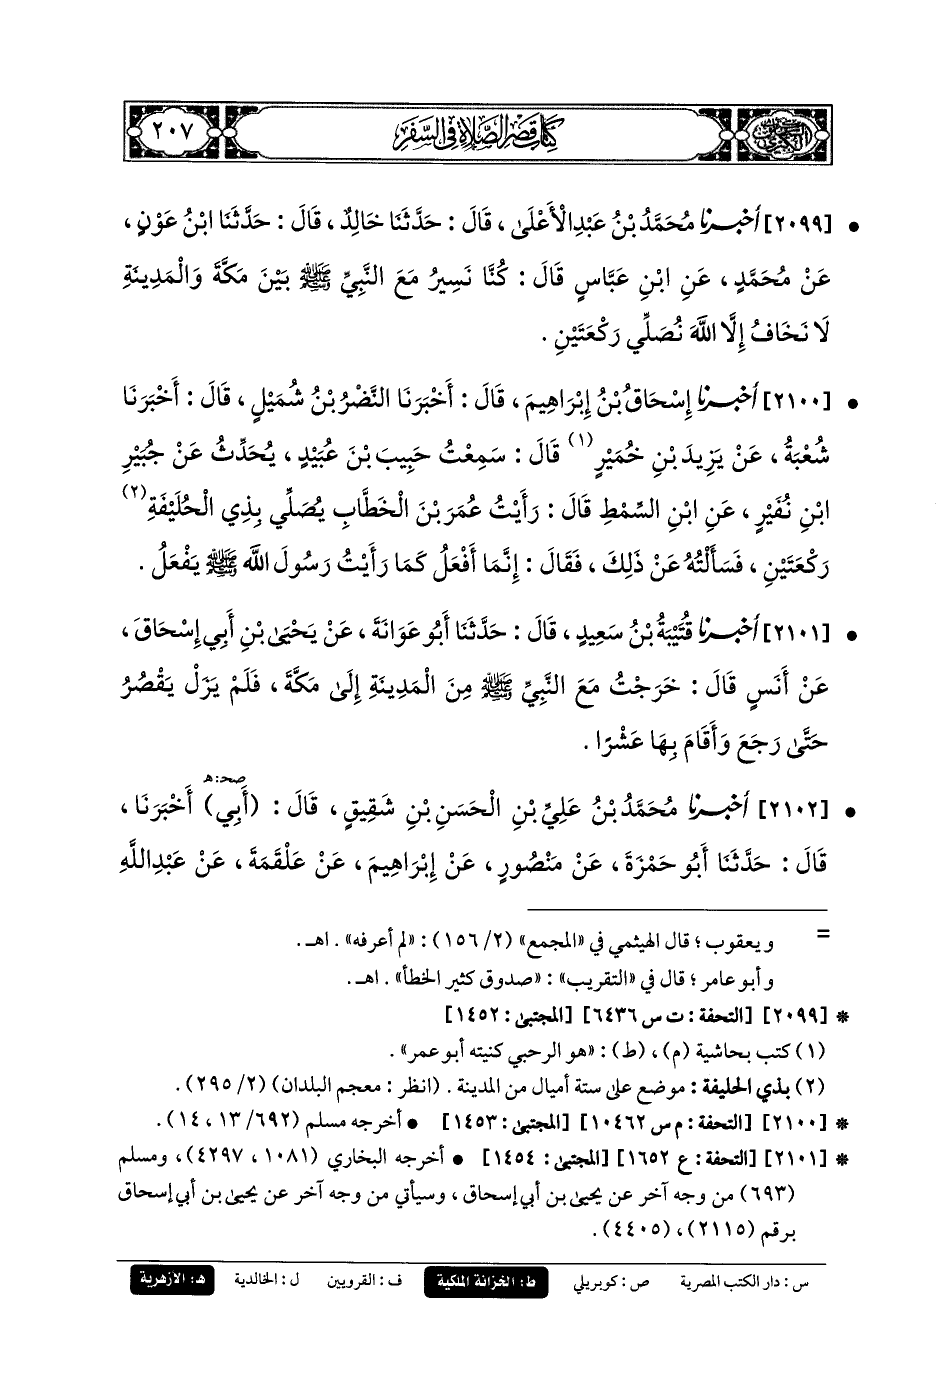 كتاب قصر الصلاة في السفر
٢٠٧
• [٢٠٩٩] أخبرنا مُحَمَّدُ بْنُ عَبْدِ الْأَعْلَى ، قَالَ : حَدَّثَنَا خَالِدٌ ، قَالَ : حَدَّثَنَا ابْنُ عَوْنٍ ،
عَنْ مُحَمَّدٍ ، عَنِ ابْنِ عَبَّاسٍ قَالَ : كُنَّا نَسِيرُ مَعَ النَّبِيِّ ﷺ بَيْنَ مَكَّةَ وَالْمَدِينَةِ
لَا نَخَافُ إِلَّا اللَّهَ نُصَلِّي رَكْعَتَيْنِ .
• [٢١٠٠] أخبرنا إِسْحَاقُ بْنُ إِبْرَاهِيمَ ، قَالَ : أَخْبَرَنَا النَّضْرُ بْنُ شُمَيْلٍ ، قَالَ : أَخْبَرَنَا
شُعْبَةُ ، عَنْ يَزِيدَ بْنِ خُمَيْرٍ (١) قَالَ : سَمِعْتُ حَبِيبَ بْنَ عُبَيْدٍ ، يُحَدِّثُ عَنْ جُبَيْرِ
ابْنِ نُفَيْرٍ ، عَنِ ابْنِ السِّمْطِ قَالَ : رَأَيْتُ عُمَرَ بْنَ الْخَطَّابِ يُصَلِّي بِذِي الْحُلَيْفَةِ (٢)
رَكْعَتَيْنِ ، فَسَأَلْتُهُ عَنْ ذَلِكَ ، فَقَالَ : إِنَّمَا أَفْعَلُ كَمَا رَأَيْتُ رَسُولَ اللَّهِ ﷺ يَفْعَلُ .
• [٢١٠١] أخبرنا قُتَيْبَةُ بْنُ سَعِيدٍ ، قَالَ : حَدَّثَنَا أَبُو عَوَانَةَ ، عَنْ يَحْيَى بْنِ أَبِي إِسْحَاقَ ،
عَنْ أَنَسٍ قَالَ : خَرَجْتُ مَعَ النَّبِيِّ ﷺ مِنَ الْمَدِينَةِ إِلَى مَكَّةَ ، فَلَمْ يَزَلْ يَقْصُرُ
حَتَّى رَجَعَ وَأَقَامَ بِهَا عَشْرًا .
صحـ : هـ
• [٢١٠٢] أخبرنا مُحَمَّدُ بْنُ عَلِيِّ بْنِ الْحَسَنِ بْنِ شَقِيقٍ ، قَالَ : (أَبِي) أَخْبَرَنَا ،
قَالَ : حَدَّثَنَا أَبُو حَمْزَةَ ، عَنْ مَنْصُورٍ ، عَنْ إِبْرَاهِيمَ ، عَنْ عَلْقَمَةَ ، عَنْ عَبْدِ اللَّهِ
= ويعقوب ؛ قال الهيثمي في «المجمع» (٢/ ١٥٦) : «لم أعرفه» . اهـ .
وأبو عامر ؛ قال في «التقريب» : «صدوق كثير الخطأ» . اهـ .
* [٢٠٩٩] [التحفة : ت س ٦٤٣٦] [المجتبى : ١٤٥٢]
(١) كتب بحاشية (م) ، (ط) : «هو الرحبي كنيته أبو عمر» .
(٢) بذي الحليفة : موضع على ستة أميال من المدينة . (انظر : معجم البلدان) (٢/ ٢٩٥) .
* [٢١٠٠] [التحفة : م س ١٠٤٦٢] [المجتبى : ١٤٥٣] • أخرجه مسلم (٦٩٢/ ١٣ ، ١٤) .
* [٢١٠١] [التحفة : ع ١٦٥٢] [المجتبى : ١٤٥٤] • أخرجه البخاري (١٠٨١ ، ٤٢٩٧) ، ومسلم
(٦٩٣) من وجه آخر عن يحيى بن أبي إسحاق ، وسيأتي من وجه آخر عن يحيى بن أبي إسحاق
برقم (٢١١٥) ، (٤٤٠٥) .
س : دار الكتب المصرية ص : كوبريلي ط : الخزانة الملكية ف : القرويين ل : الخالدية هـ : الأزهرية